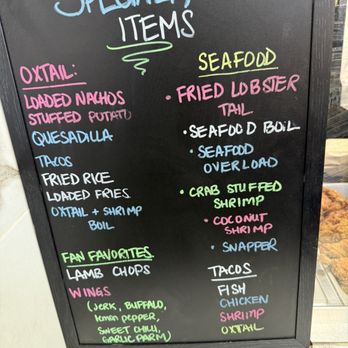 SPECIALTY
ITEMS
OXTAIL:
LOADED NACHOS
STUFFED POTATO
QUESADILLA
TACOS
FRIED RICE
LOADED FRIES
OXTAIL + SHRIMP
BOIL
FAN FAVORITES
LAMB CHOPS
WINGS
(JERK, BUFFALO,
lemon pepper,
SWEET CHILI,
GARLIC PARM)
SEAFOOD
• FRIED LOBSTER
TAIL
• SEAFOOD BOIL
• SEAFOOD
OVERLOAD
• CRAB STUFFED
SHRIMP
• COCONUT
SHRIMP
• SNAPPER
TACOS
FISH
CHICKEN
SHRIMP
OXTAIL